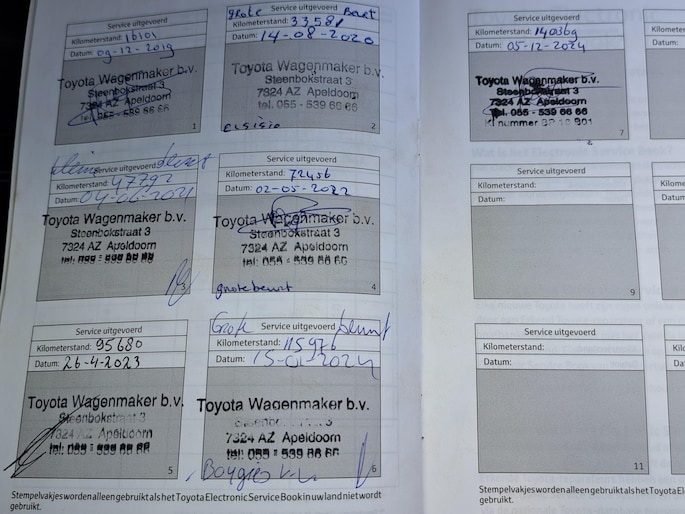 Service uitgevoerd
Kilometerstand: 16101
Datum: 09-12-2019
Toyota Wagenmaker b.v.
Steenbokstraat 3
7324 AZ Apeldoorn
tel. 055 - 539 66 66
1
grote Beurt
Service uitgevoerd
Kilometerstand: 33581
Datum: 14-08-2020
Toyota Wagenmaker b.v.
Steenbokstraat 3
7324 AZ Apeldoorn
tel. 055 - 539 66 66
2
kleine beurt
Service uitgevoerd
Kilometerstand: 47792
Datum: 04-06-2021
Toyota Wagenmaker b.v.
Steenbokstraat 3
7324 AZ Apeldoorn
3
Service uitgevoerd
Kilometerstand: 72456
Datum: 02-05-2022
Toyota Wagenmaker b.v.
Steenbokstraat 3
7324 AZ Apeldoorn
tel. 055 - 539 66 66
grote beurt
4
Service uitgevoerd
Kilometerstand: 95680
Datum: 26-4-2023
Toyota Wagenmaker b.v.
Steenbokstraat 3
7324 AZ Apeldoorn
5
Grote beurt
Service uitgevoerd
Kilometerstand: 115976
Datum: 15-01-2024
Toyota Wagenmaker b.v.
7324 AZ Apeldoorn
tel. 055 - 539 66 66
6
Stempelvakjes worden alleen gebruikt als het Toyota Electronic Service Book in uw land niet wordt
gebruikt.
Service uitgevoerd
Kilometerstand: 140369
Datum: 05-12-2024
Toyota Wagenmaker b.v.
Steenbokstraat 3
7324 AZ Apeldoorn
tel. 055 - 539 66 66
7
Service uitgevoerd
Kilometerstand:
Datum:
9
Service uitgevoerd
Kilometerstand:
Datum:
11
Stempelvakjes worden alleen gebruikt als het
gebruikt.